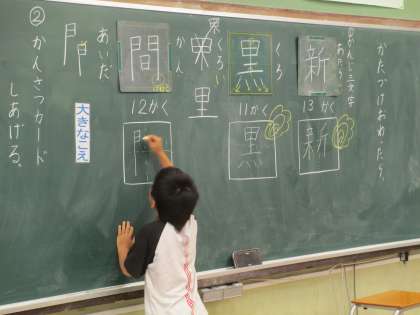 かたづけおわったら、
①かん字三文字
あたらしい
新
13かく
新
くろ
黒
11かく
黒
くろい
里
かん
間
12かく
門
あいだ
門
大きなこえ
②かんさつカード
しあげる。